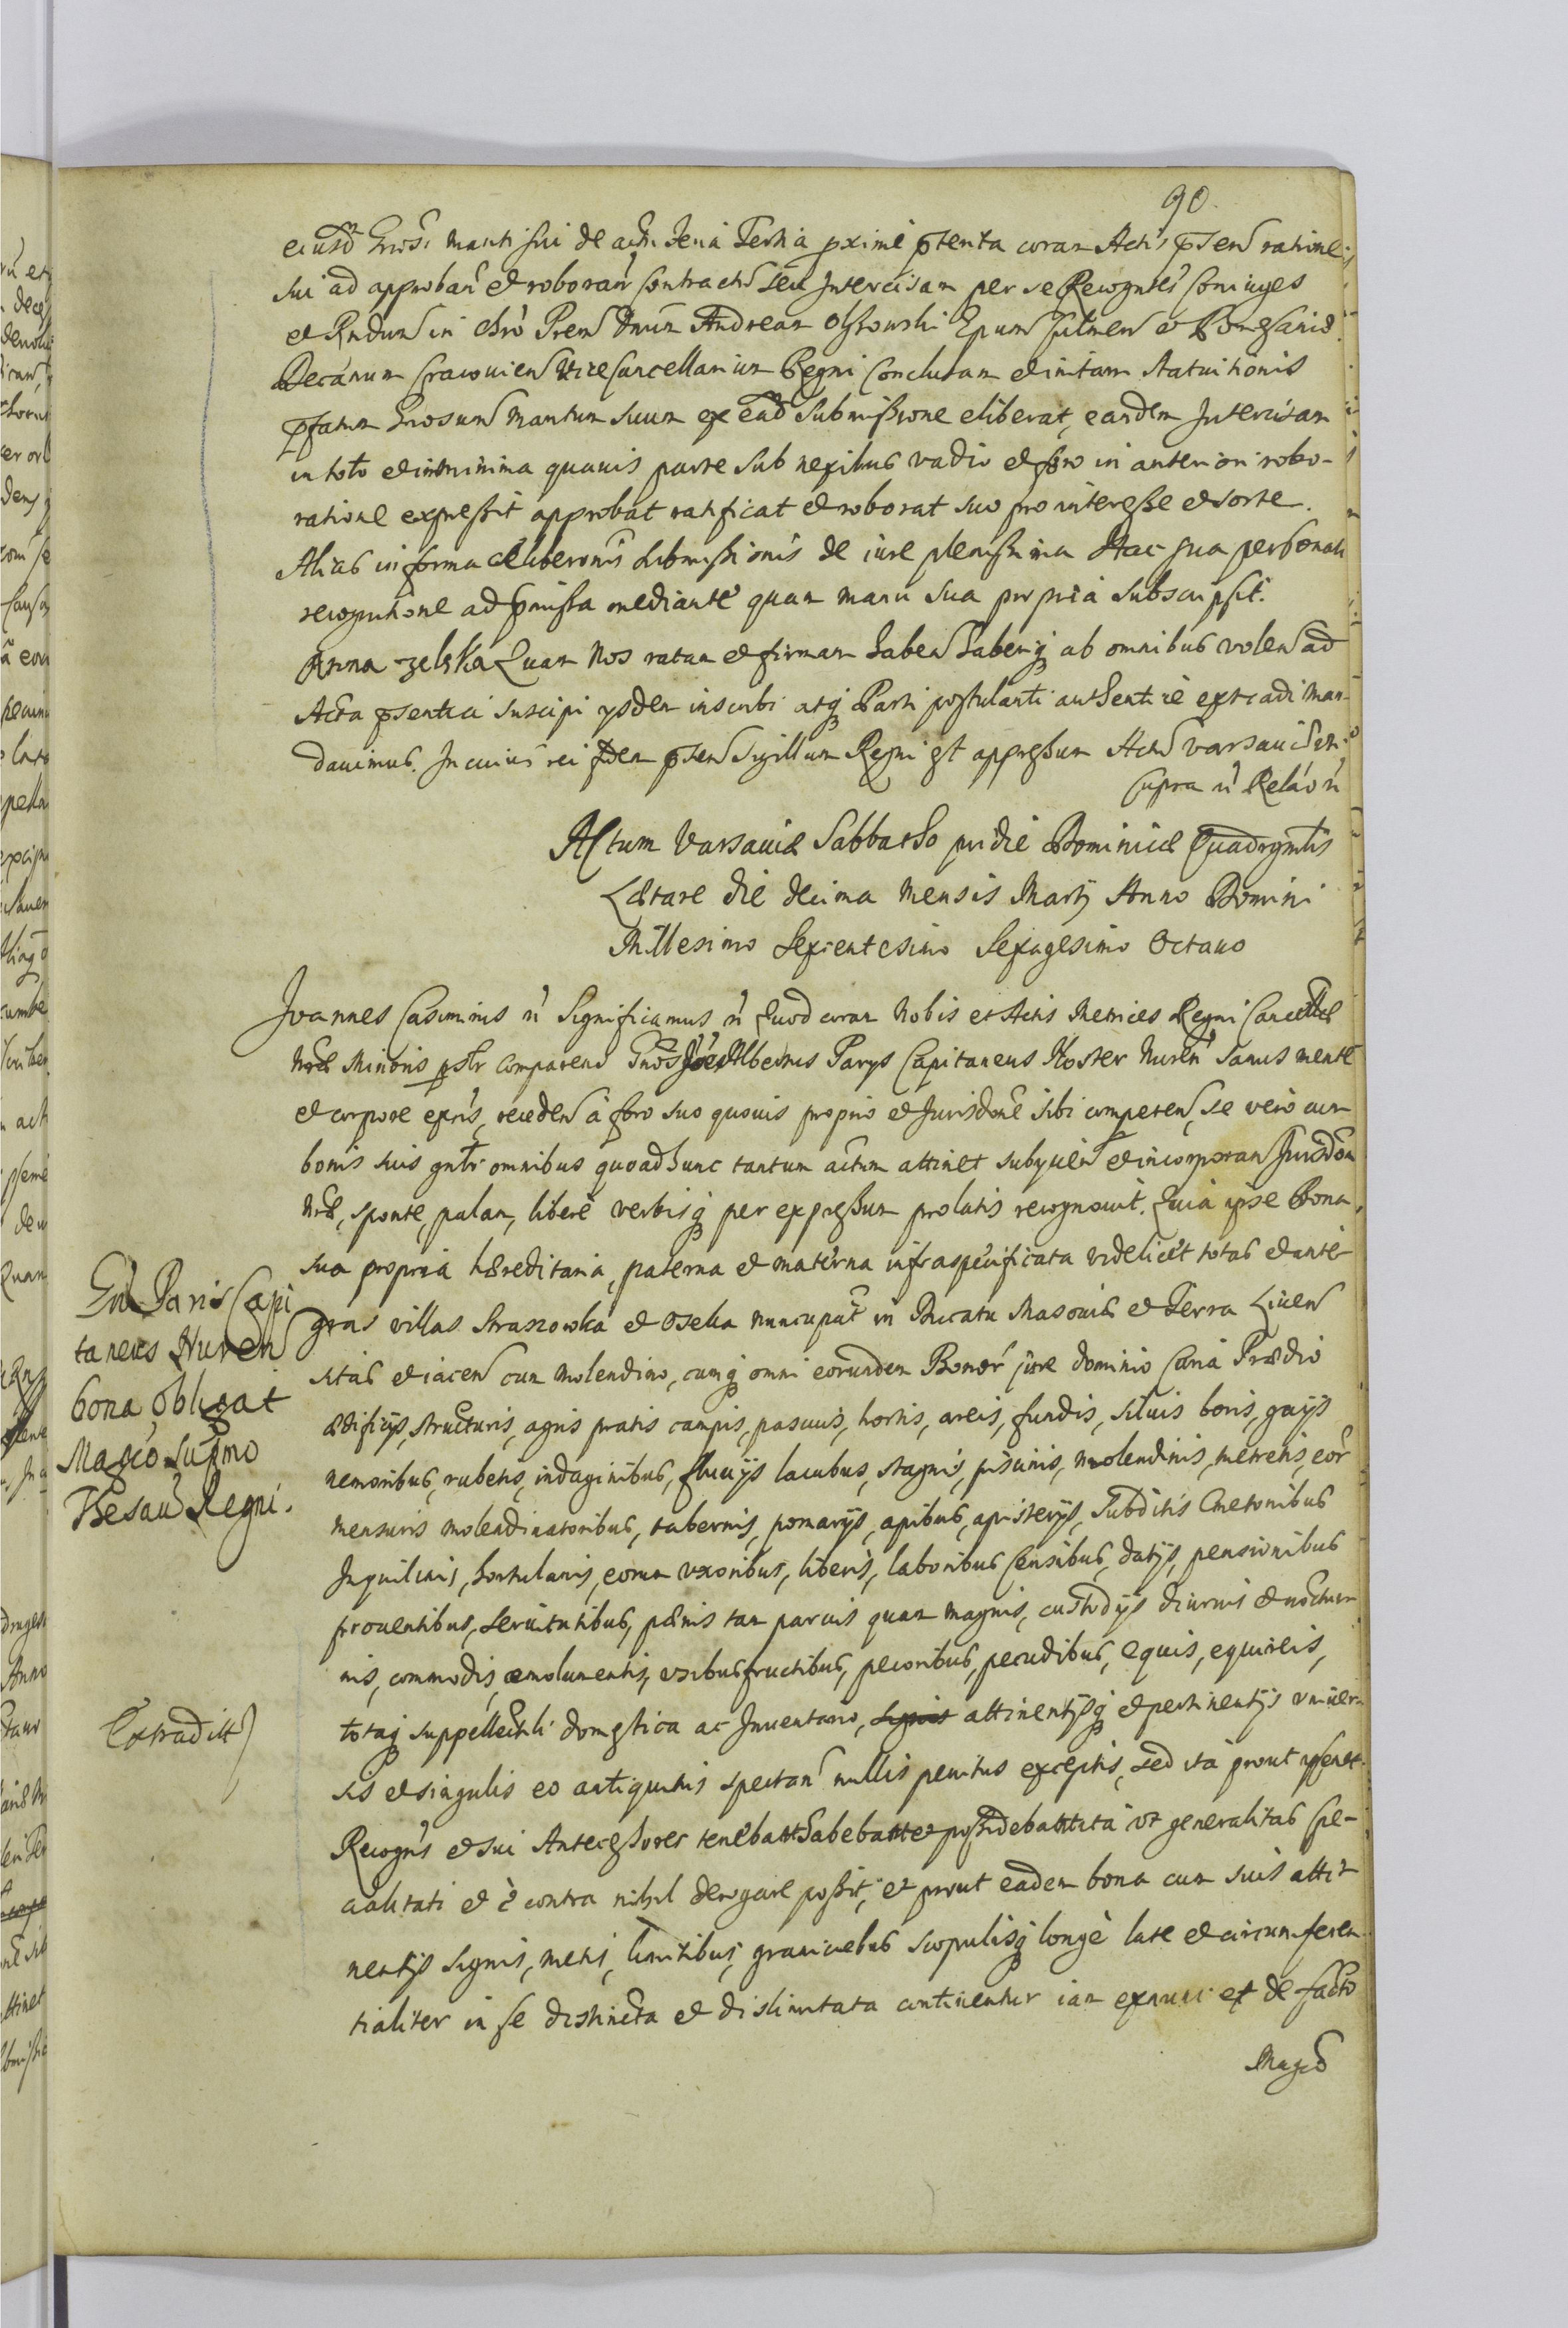 90.
eiusd Gnosi mariti sui de actu feria Tertia pxime ptenta coram Actis psen ratione
sui ad approban et roboran Contractus seu Intercisam per se Recogntes Coniuges
et Rndum in Chro Prem Dnum Andream Olszowski Epum Culmen et Pomesaniæ
Decanum Cracouien ViceCancellarium Regni Conclusam et initam statuitionis
pfatum Gnosum maritum suum ex ead submissione eliberat, eandem Intercisam
in toto et in minima quauis parte sub nexibus vadio et foro in anteriori robo-
ratione expressit approbat ratificat et roborat suo pro interesse et sorte.
Alias in forma eliberonis submissionis de iure plenissima Hac sua personali
recognitione ad pmissa mediante quam manu sua propria subscripsit.
Anna zelska Quam Nos ratam et firmam haben haberiq ab omnibus volen ad
Acta psentia suscipi ysdem inscribi atq Parti postulanti authentice extradi man-
dauimus. In cuius rei fidem psen Sigillum Regni est appressum Actum Varsauiæ ut
supra ñ Relaõ ñ
Actum Varsauiæ Sabbatho pridie Dominicæ Quadrgmlis
Lætare die decima Mensis Martij Anno Domini
Millesimo Sexcentesimo Sexagesimo Octauo
Joannes Casimirus ñ Significamus ñ Quod coram Nobis et Actis Metrices Regni Cancellæ
Nræ Minoris pslr comparens Gnosus Albertus Parys Capitaneus Noster Nuren sanus mente
et corpore exns, receden à foro suo quouis proprio et Jurisdone sibi competen, se vero cum
bonis suis gnlr omnibus quoad hunc tantum actum attinet subycien et incorporan Jurisdon
Nræ, sponte, palam, libere verbisq per expressum prolatis recognouit. Quia ipse Bona
sua propria hæreditaria, paterna et materna infraspecificata videlicet totas et inte-
gras villas Straszowka et Oselka nuncupat in Ducatu Masouiæ et Terra Liuen
sitas et iacen cum molendino, cumq omni eorundem Bonor iure dominio Caria Prædio
ædificijs, structuris, agris pratis campis, pascuis, hortis, areis, fundis, siluis boris, gaijs
nemoribus, rubetis, indaginibus, fluuijs lacubus, stagnis, piscinis, molendinis, metretis, eor
mensuris molendinatoribus, tabernis, pomarijs, apibus, apisterijs, Subditis Cmetonibus
Inquilinis, hortulanis, eorum vxoribus, liberis, laboribus Censibus, datijs, pensionibus
prouentibus, seruitutibus, pænis tam paruis quam magnis, custodijs diurnis et noctur-
nis, commodis, emolumentis, vsibusfructibus, pecoribus, pecudibus, equis, equireis,
totaq suppellectili domestica ac Inuentario, attinentijsq et pertinentijs vniuer-
sis et singulis eo antiquitus spectan nullis penitus exceptis, sed ita prout ipsemet
Recogns et sui Antecessores tenebant habebant et possidebant ita vt generalitas spe-
cialitati et è contra nihil derogare possit, et prout eadem bona cum suis atti-
nentijs signis, metis, limitibus, granicebus scopulisq longè late et circumferen-
tialiter in se distincta et dislimitata continentur iam exnunc et de facto
Magco
Gn Paris Capi
taneus Nuren
bona obligat
Magco Supmo
Thesau Regni.
Extradit